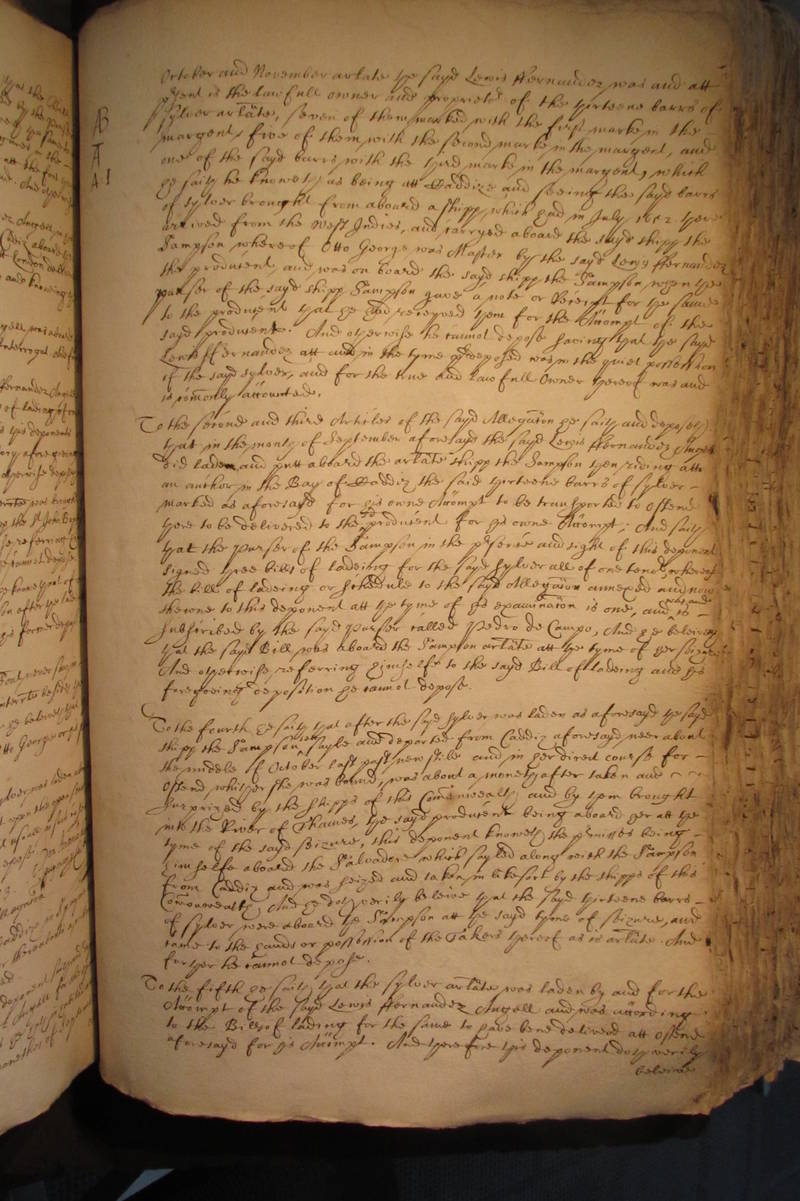 October and November arlate the sayd Lewis Hernandez was and att
present is the lawfull owner and proprietor of the thirteene barrs of
sylver arlate, seven of them marked with the first marke in the
margent, five of them with the second marke in the margent, and
one of the sayd barrs with the third mark in the margent, which
he saith he knoweth as being att Caddize and seeing the sayd barrs
of sylver brought from aboard a shipp, which had in July 1652 there
arrived from the West Indies, and carryed aboard the sayd shipp the
Sampson whereof Otto George was Master by the sayd Lewis Hernandez
the producent, and was on board the sayd shipp the Sampson, when the
purser of the sayd shipp Sampson gave a note or Receipt for the same
to the producent that he had receyved them for the Accompt of the
sayd producent. And otherwise he cannot depose saving that the sayd
Lewis Hernandez att and in the tyme predeposed was in the quiet possession
of the sayd sylver, and for the true and lawfull Owner thereof was and
is comonly accounted.
To the second and third Articles of the sayd Allegacon he saith and deposeth
that in the month of September aforesayd the sayd Lewis Hernandez Angell
did laden and putt aboard the arlate shipp the Sampson then riding att
an anchor in the Bay of Caddiz the said thirteene barrs of sylver
marked as aforesayd for his owne Accompt to be transported to Ostend
there to be delivered to the sd producent for his owne Accompt. And saith
that the Purser of the Sampson in the presence and sight of this deponent
signed three bills of ladeing for the sayd sylver all of one tenor, whereof
the bill of ladeing or schedule to the sayd Allegacon annexed and now
shewne to this deponent att the tyme of his examinacon is one, and was
subscribed by the sayd Purser called Pedro de Campo, And he beleiveth
that the sayd Bill was aboard the Sampson arlate att the tyme of her seizure
And otherwise referring himselfe to the sayd Bill of ladeing and his
foregoeing deposition he cannot depose.
To the fourth he saith that after the sayd sylver was laden as aforesayd the sayd
shipp the Sampson sett sayle and departed from Caddiz aforesayd neer about
the middle of October last past new stile and in her direct course for
Ostend whither she was bound, was about a moneth after taken and
surprized by the shipps of this Comonwealth and by them brought
into the River of Thames, the sayd producent being aboard her att the
tyme of the sayd seizure, this deponent knoweth the premisses being
himselfe aboard the Salvador which sayled along with the Sampson
from Caddiz and was seized and taken in like sort by the shipps of this
Comonwealth, And he doth verily beleive that the sayd thirteene barrs
of sylver were aboard the Sampson att the sayd tyme of seizure, and
came to the hands or possession of the Takers thereof as is arlate. And
further he cannot depose.
To the fifth he saith that the sylver arlate was laden by and for the
Accompt of the sayd Lewis Hernandez Angell and was according
to the Bills of lading for the same to have bene delivered att Ostend
aforesayd for his Accompt. And therefore this deponent doth verily
beleive